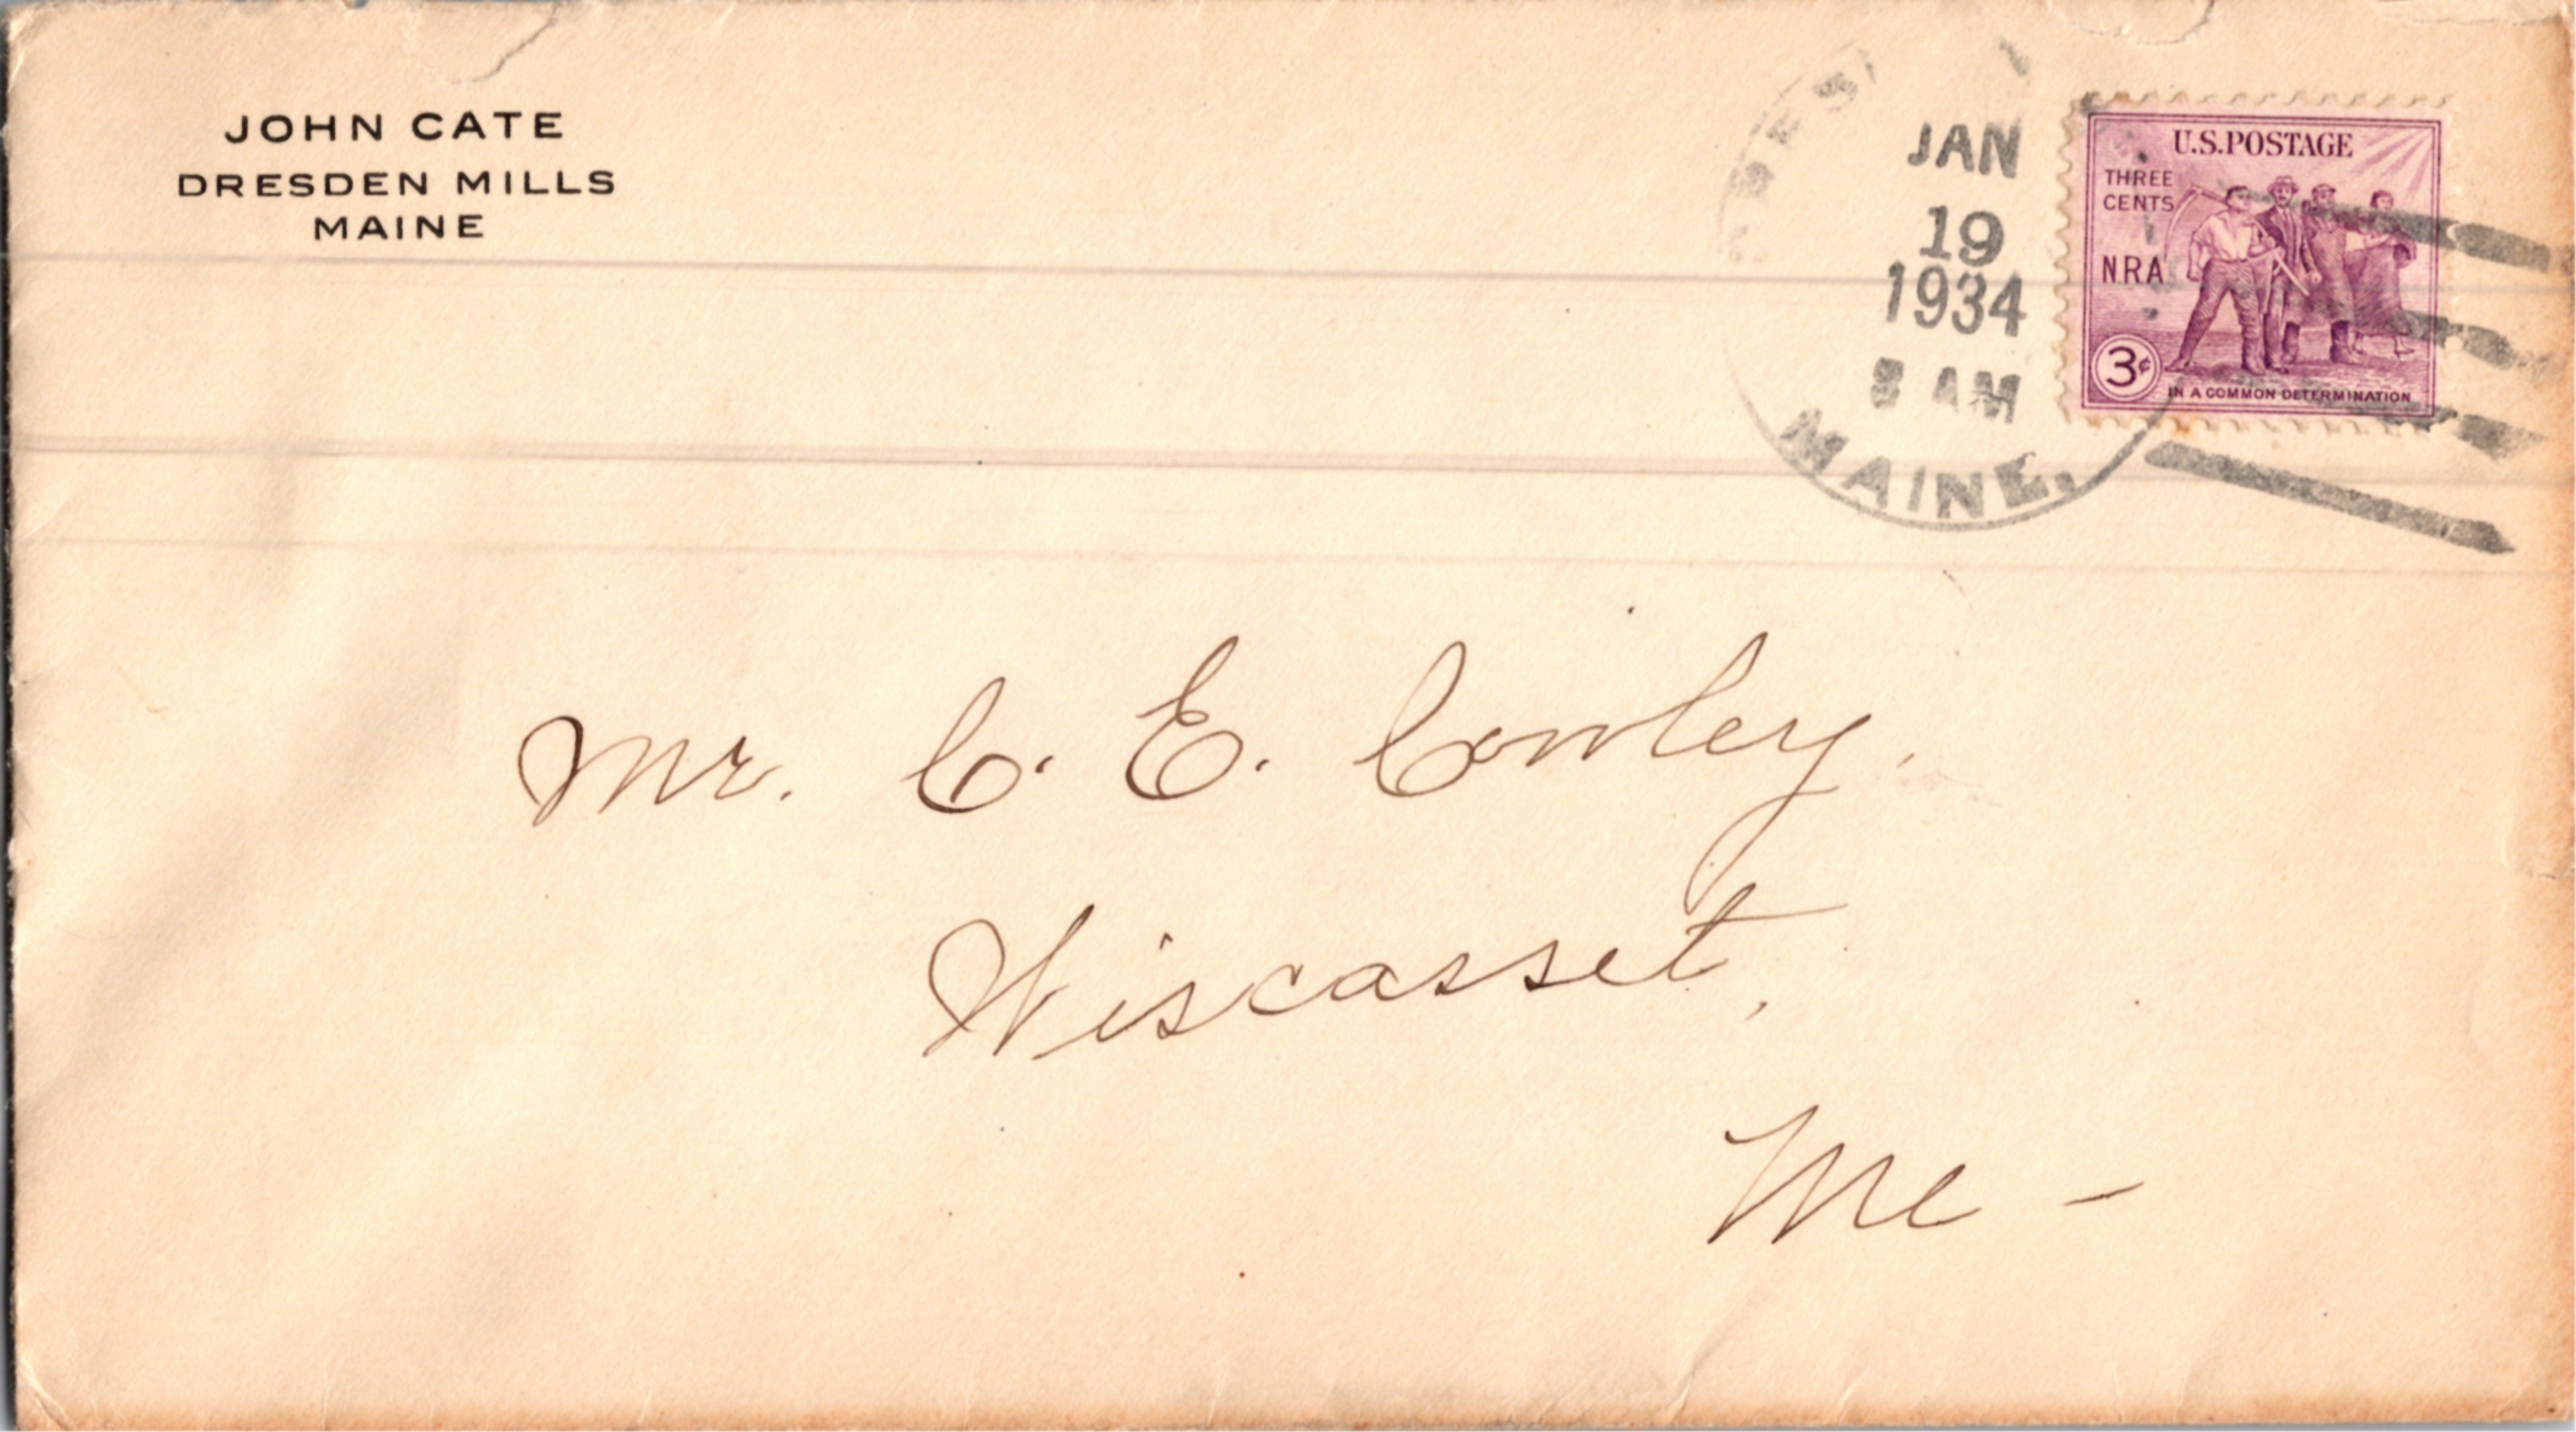 JOHN CATE
DRESDEN MILLS
MAINE
JAN
19
1934
8 AM
MAINE.
U.S.POSTAGE
THREE
CENTS
N.R.A.
3¢
IN A COMMON DETERMINATION
Mr. C. E. Conley.
Wiscasset,
Me -